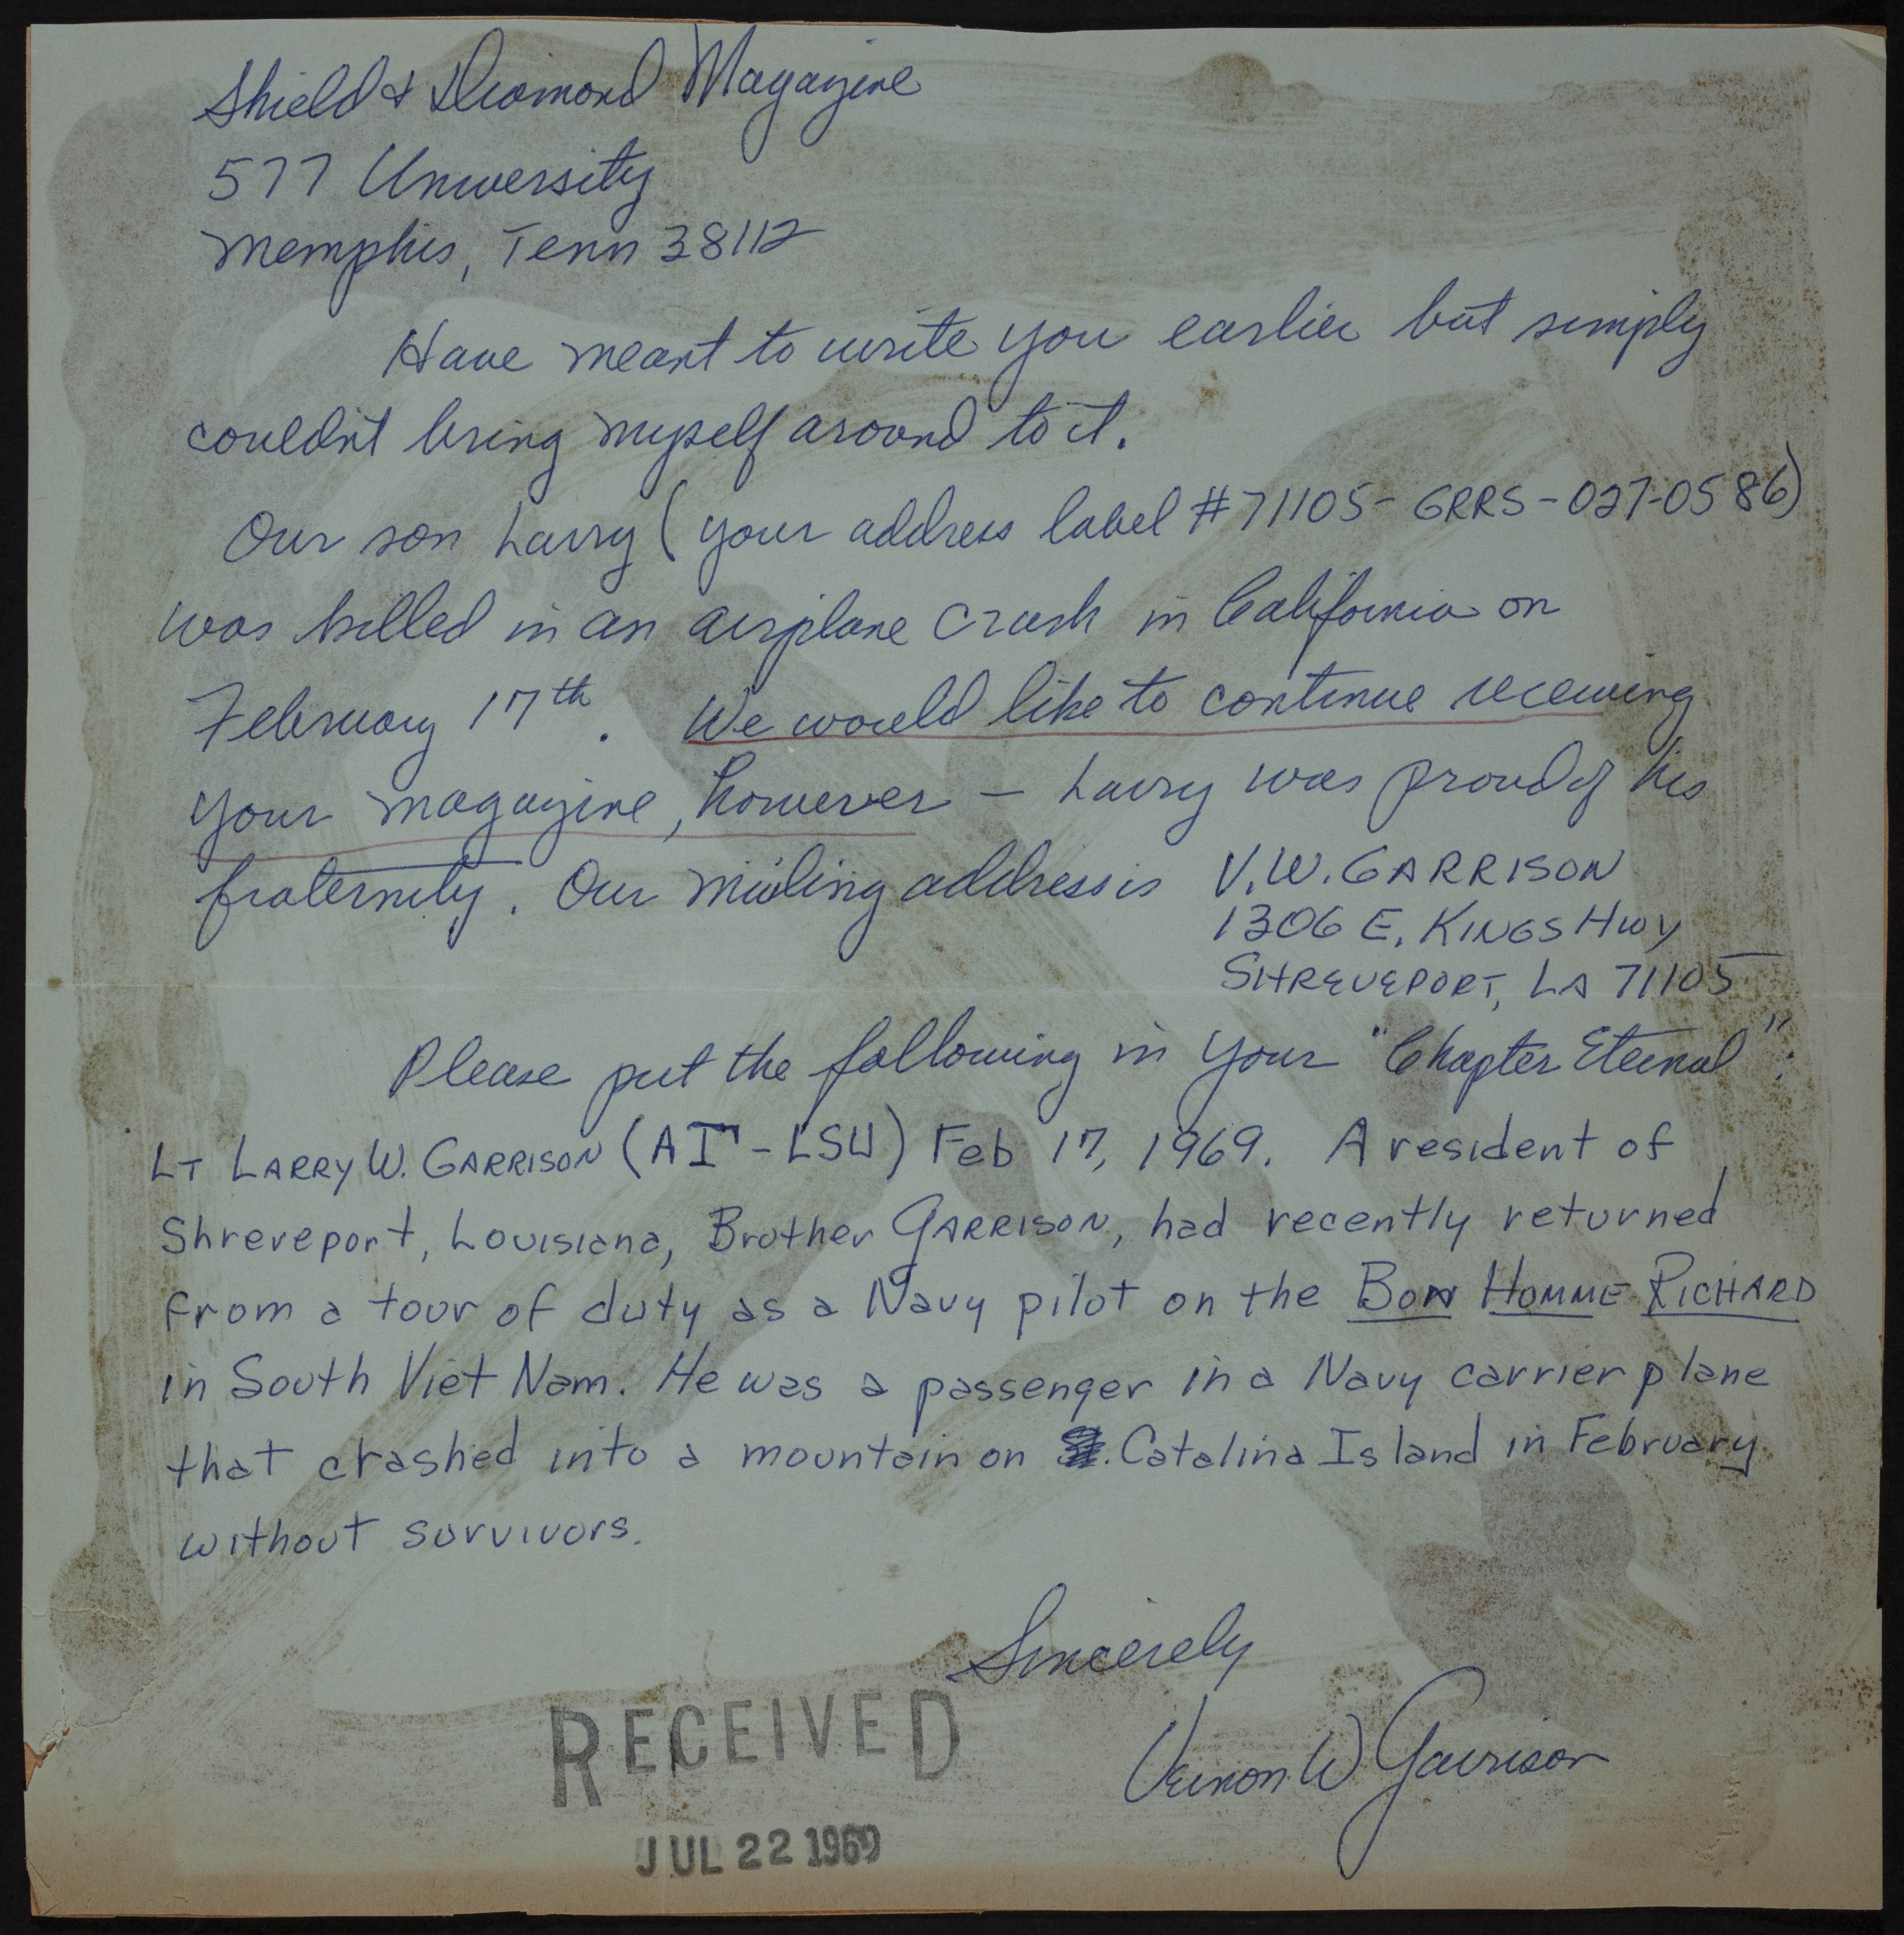 Shield & Diamond Magazine
577 University
Memphis, Tenn 38112
Have meant to write you earlier but simply
couldn't bring myself around to it.
Our son Larry (your address label #71105-GRRS-027-0586)
was killed in an airplane crash in California on
February 17th. We would like to continue receiving
your magazine, however – Larry was proud of his
fraternity. Our mailing address is V.W. GARRISON
1306 E. KINGS HWY
SHREVEPORT, LA 71105
Please put the following in your "Chapter Eternal":
LT LARRY W. GARRISON (AΓ - LSU) Feb 17, 1969. A resident of
Shreveport, Louisiana, Brother GARRISON, had recently returned
from a tour of duty as a Navy pilot on the BON HOMME RICHARD
in South Viet Nam. He was a passenger in a Navy carrier plane
that crashed into a mountain on Catalina Island in February
without survivors.
Sincerely
Vernon W Garrison
RECEIVED
JUL 22 1969